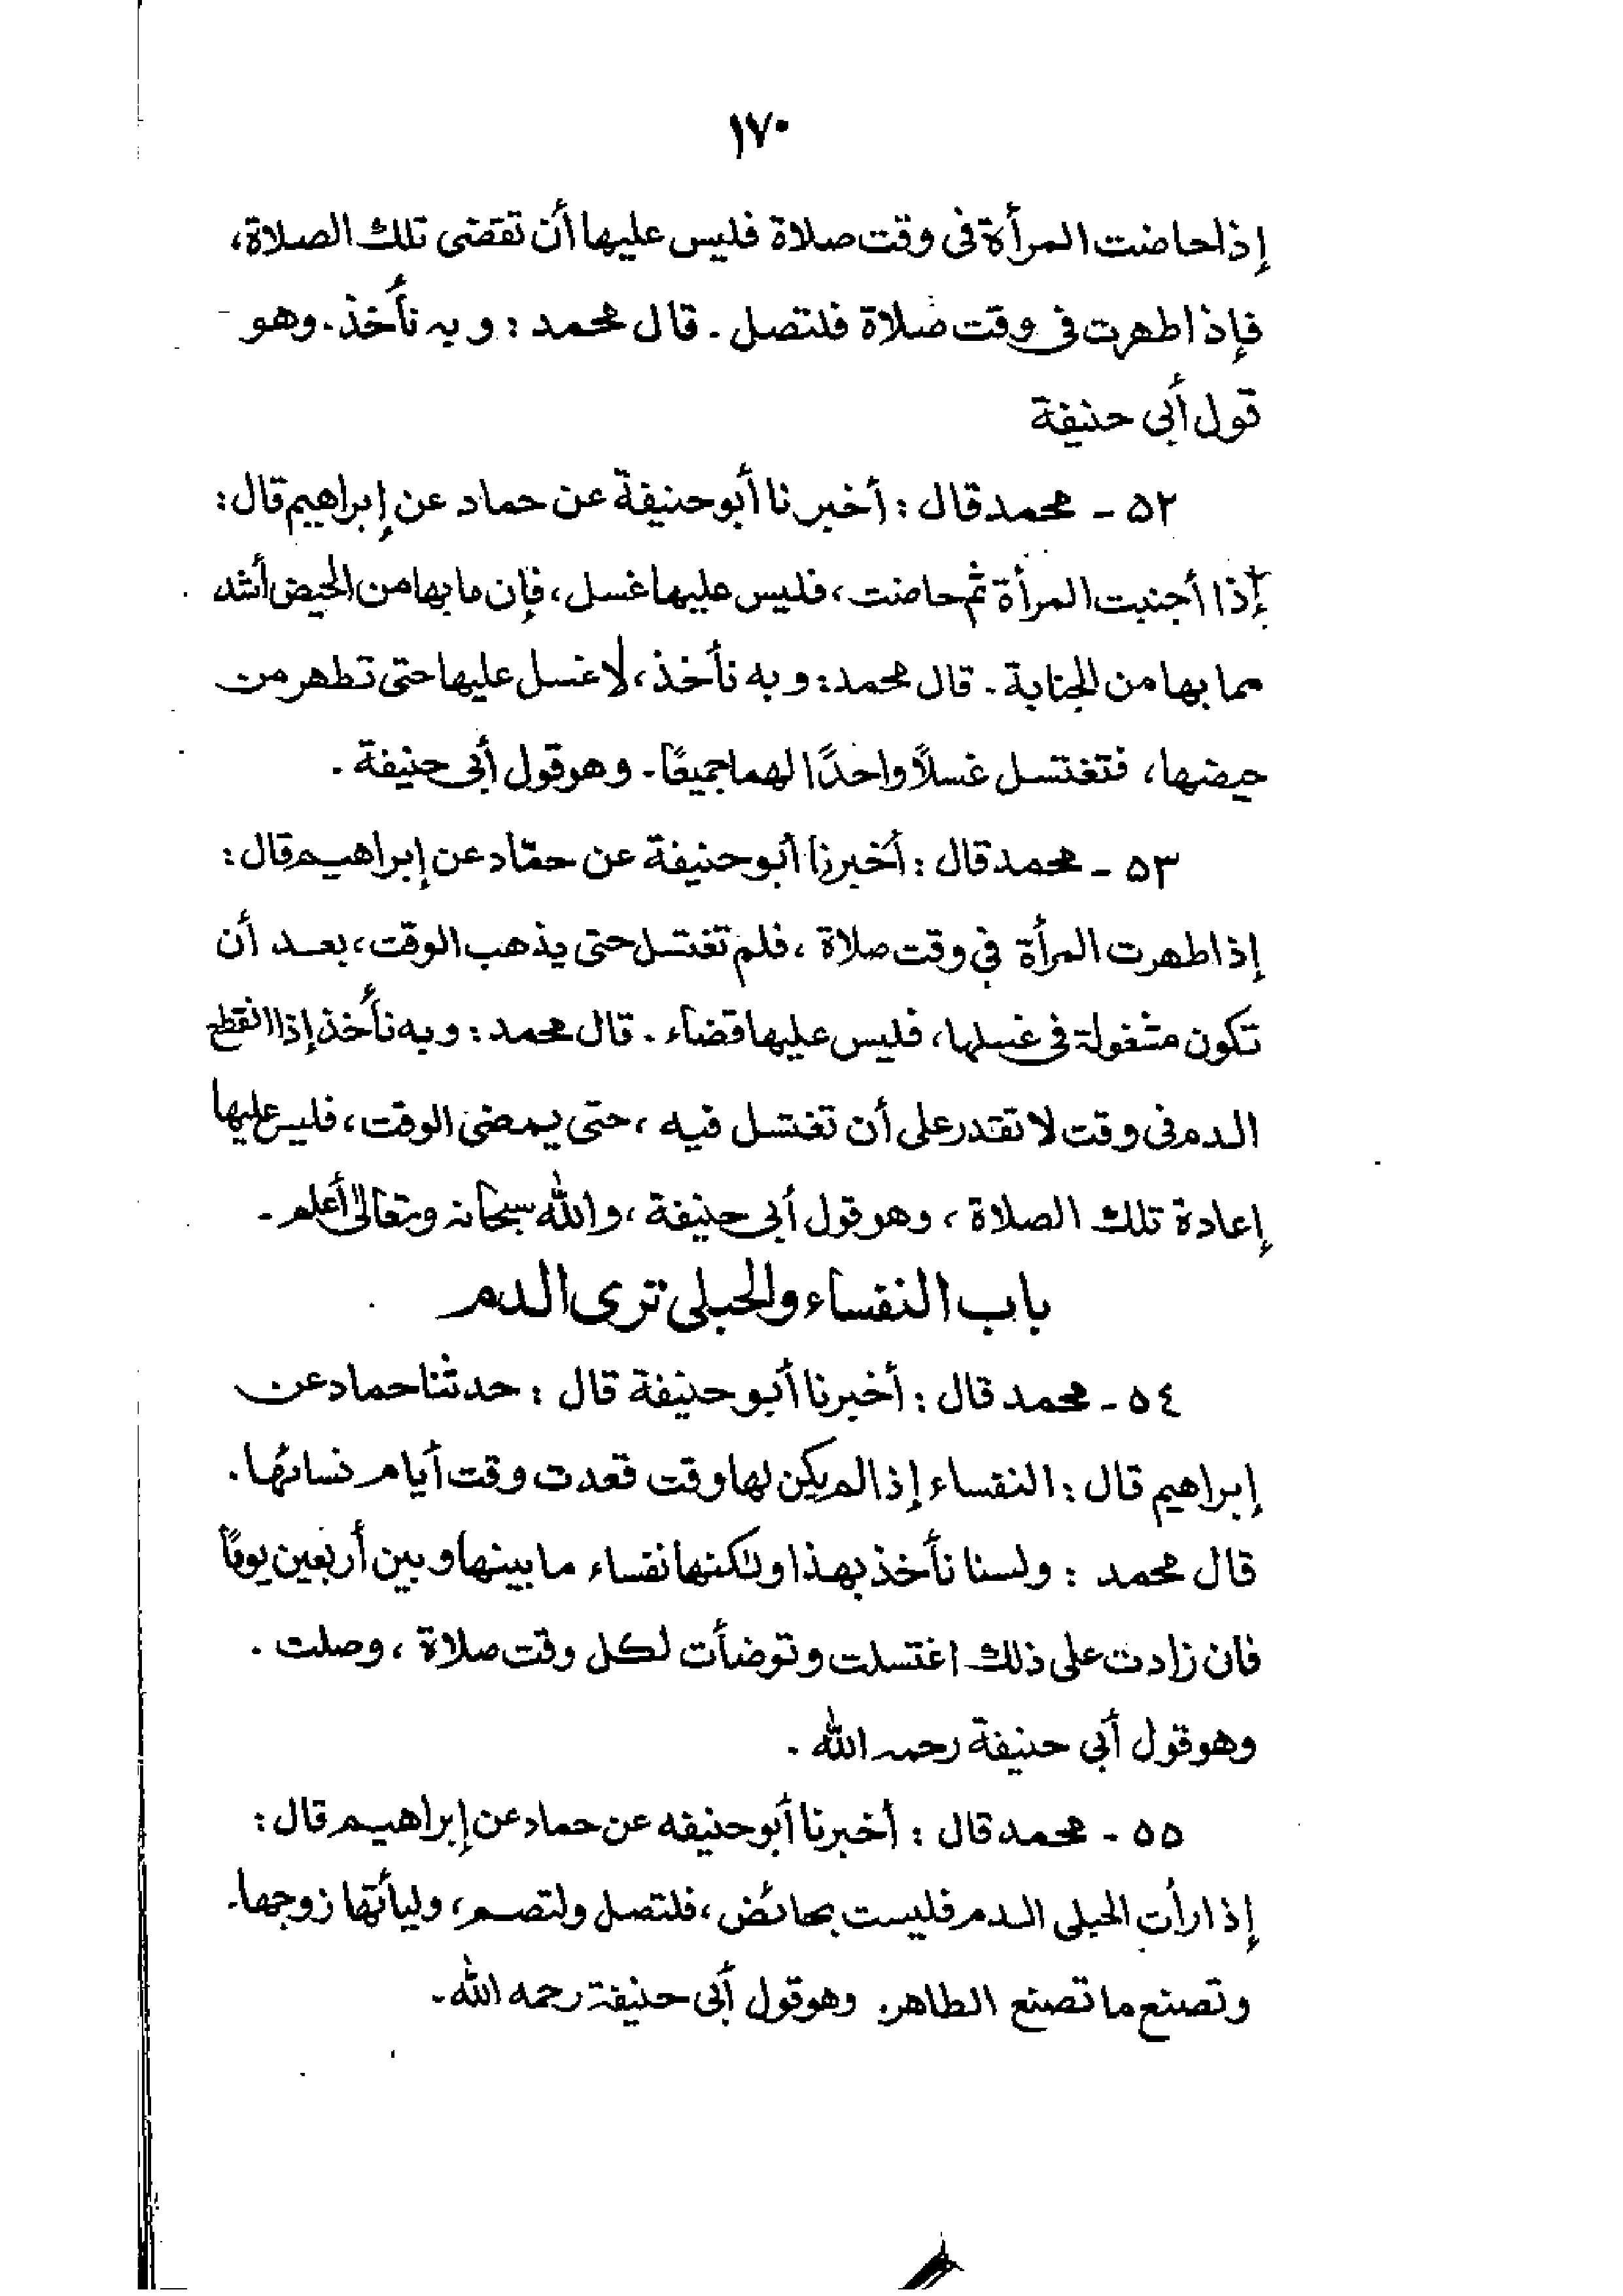 ١٧٠
إذا حاضت المرأة فى وقت صلاة فليس عليها أن تقضى تلك الصلاة،
فإذا طهرت فى وقت صلاة فلتصل. قال محمد : وبه نأخذ. وهو
قول أبى حنيفة
٥٢ - محمد قال : أخبرنا أبو حنيفة عن حماد عن إبراهيم قال :
إذا أجنبت المرأة ثم حاضت، فليس عليها غسل، فإن ما بها من الحيض أشد
مما بها من الجنابة. قال محمد : وبه نأخذ، لا غسل عليها حتى تطهر من
حيضها، فتغتسل غسلاً واحدًا لهما جميعًا. وهو قول أبى حنيفة.
٥٣ - محمد قال : أخبرنا أبو حنيفة عن حمّاد عن إبراهيم قال :
إذا طهرت المرأة في وقت صلاة ، فلم تغتسل حتى يذهب الوقت، بعد أن
تكون مشغولة فى غسلها، فليس عليها قضاء. قال محمد : وبه نأخذ إذا انقطع
الدم فى وقت لا تقدر على أن تغتسل فيه ، حتى يمضى الوقت، فليس عليها
إعادة تلك الصلاة ، وهو قول أبى حنيفة ، والله سبحانه وتعالى أعلم.
باب النفساء والحبلى ترى الدم
٥٤ - محمد قال : أخبرنا أبو حنيفة قال : حدثنا حماد عن
إبراهيم قال : النفساء إذا لم يكن لها وقت قعدت وقت أيام نسائها.
قال محمد : ولسنا نأخذ بهذا ولكنها نفساء ما بينها وبين أربعين يومًا
فان زادت على ذلك اغتسلت وتوضأت لكل وقت صلاة ، وصلت.
وهو قول أبي حنيفة رحمه الله.
٥٥ - محمد قال : أخبرنا أبو حنيفه عن حماد عن إبراهيم قال :
إذا رأت الحبلى الدم فليست بحائض، فلتصل ولتصم، وليأتها زوجها.
وتصنع ما تصنع الطاهر. وهو قول أبى حنيفة رحمه الله.